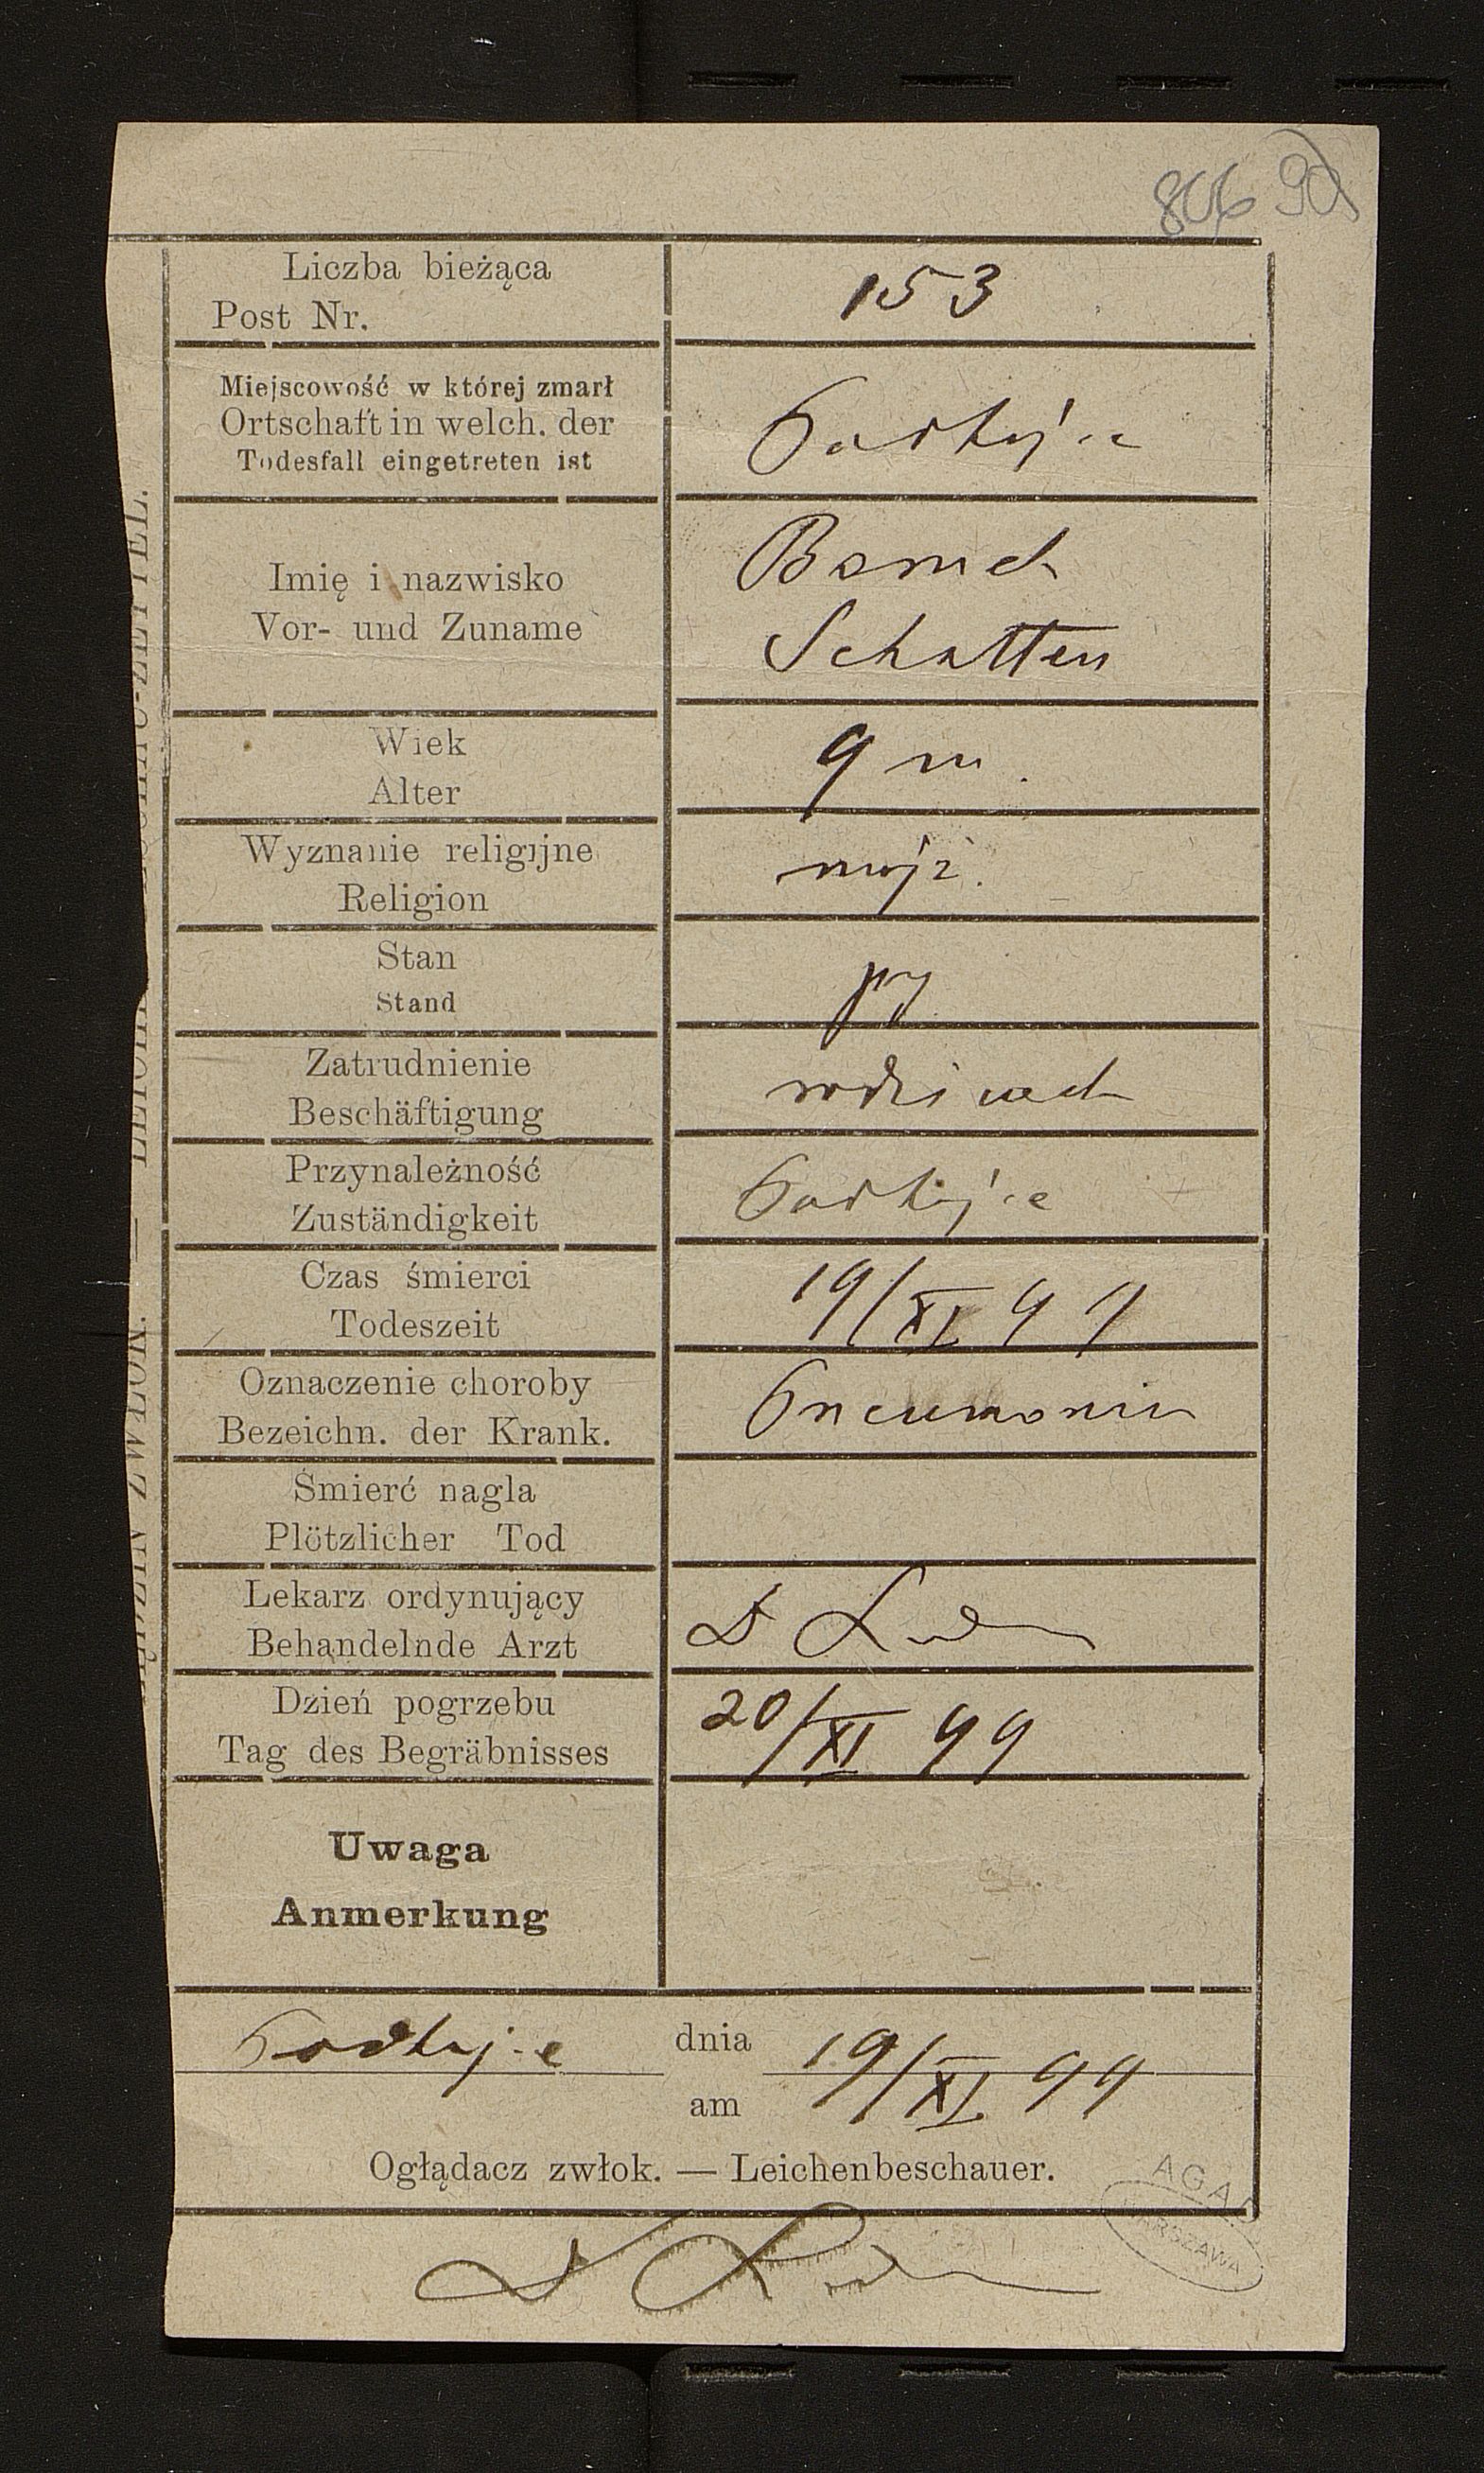 806 90
Liczba bieżąca
Post Nr.
153
Miejscowość w której zmarł
Ortschaft in welch. der
Todesfall eingetreten ist
Podhajce
Imię i nazwisko
Vor- und Zuname
Baruch
Schatten
Wiek
Alter
9 m.
Wyznanie religijne
Religion
mojż.
Stan
Stand
przy
Zatrudnienie
Beschäftigung
rodzicach
Przynależność
Zuständigkeit
Podhajce
Czas śmierci
Todeszeit
19/XI 99
Oznaczenie choroby
Bezeichn. der Krank.
Pneumonia
Śmierć nagla
Plötzlicher Tod
Lekarz ordynujący
Behandelnde Arzt
D
Dzień pogrzebu
Tag des Begräbnisses
20/XI 99
Uwaga
Anmerkung
Podhajce dnia 19/XI 99
am
Oglądacz zwłok. — Leichenbeschauer.
AGAD
WARSZAWA